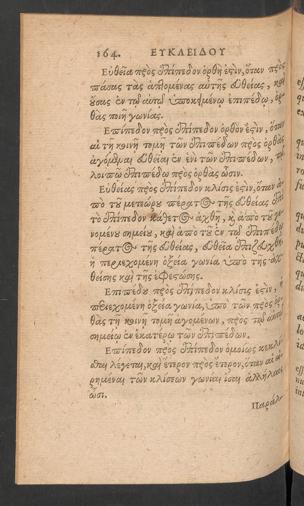 164. ΕΥΚΛΕΙΔΟΥ
Εὐθεῖα πρὸς ἐπίπεδον ὀρθή ἐστιν, ὅταν πρὸς
πάσας τὰς ἁπτομένας αὐτῆς εὐθείας, καὶ
οὔσας ἐν τῷ αὐτῷ ὑποκειμένῳ ἐπιπέδῳ, ὀρ-
θὰς ποιῇ γωνίας.
Ἐπίπεδον πρὸς ἐπίπεδον ὀρθόν ἐστιν, ὅταν
αἱ τῇ κοινῇ τομῇ τῶν ἐπιπέδων πρὸς ὀρθὰς
ἀγόμεναι εὐθεῖαι ἐν ἑνὶ τῶν ἐπιπέδων, τῷ
λοιπῷ ἐπιπέδῳ πρὸς ὀρθὰς ὦσιν.
Εὐθείας πρὸς ἐπίπεδον κλίσις ἐστὶν, ὅταν ἀ-
πὸ τοῦ μετεώρου πέρατος τῆς εὐθείας ἐπὶ
τὸ ἐπίπεδον κάθετος ἀχθῇ, κ, ἀπὸ τοῦ γε-
νομένου σημείου, καὶ ἀπὸ τοῦ ἐν τῷ ἐπιπέδῳ
πέρατος τῆς εὐθείας, εὐθεῖα ἐπιζευχθῇ,
ἡ περιεχομένη ὀξεῖα γωνία ὑπὸ τῆς ἀχ-
θείσης καὶ τῆς ἐφεστώσης.
Ἐπιπέδου πρὸς ἐπίπεδον κλίσις ἐστὶν, ἡ
περιεχομένη ὀξεῖα γωνία, ὑπὸ τῶν πρὸς ὀρ-
θὰς τῇ κοινῇ τομῇ ἀγομένων, πρὸς τῷ αὐτῷ
σημείῳ ἐν ἑκατέρῳ τῶν ἐπιπέδων.
Ἐπίπεδον πρὸς ἐπίπεδον ὁμοίως κεκλί-
σθαι λέγεται, καὶ ἕτερον πρὸς ἕτερον, ὅταν αἱ εἰ-
ρημέναι τῶν κλίσεων γωνίαι ἴσαι ἀλλήλαις
ὦσι.
Παράλ-